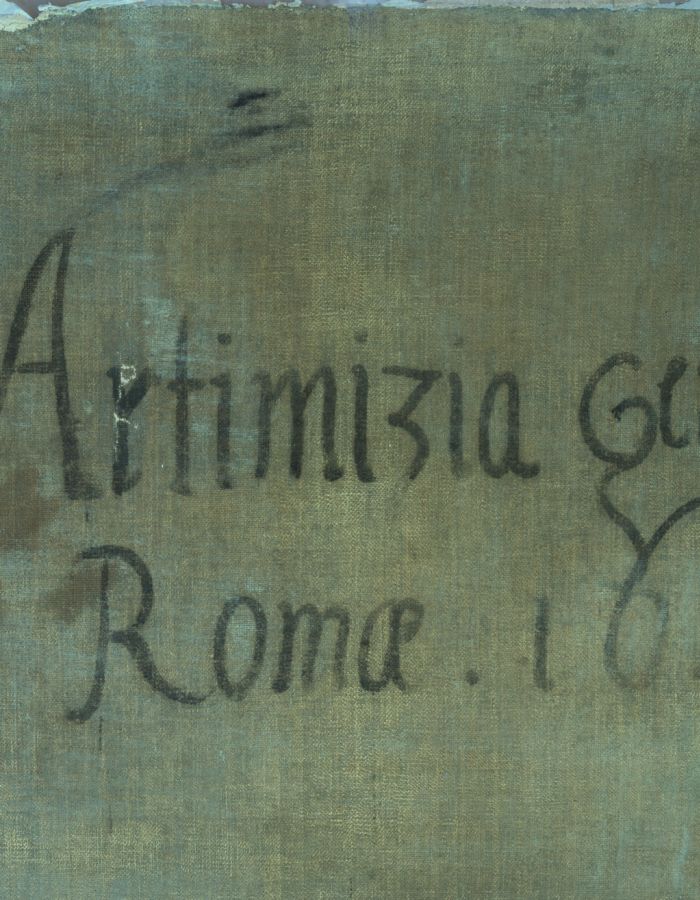 Artimizia Ge
Romæ . 16